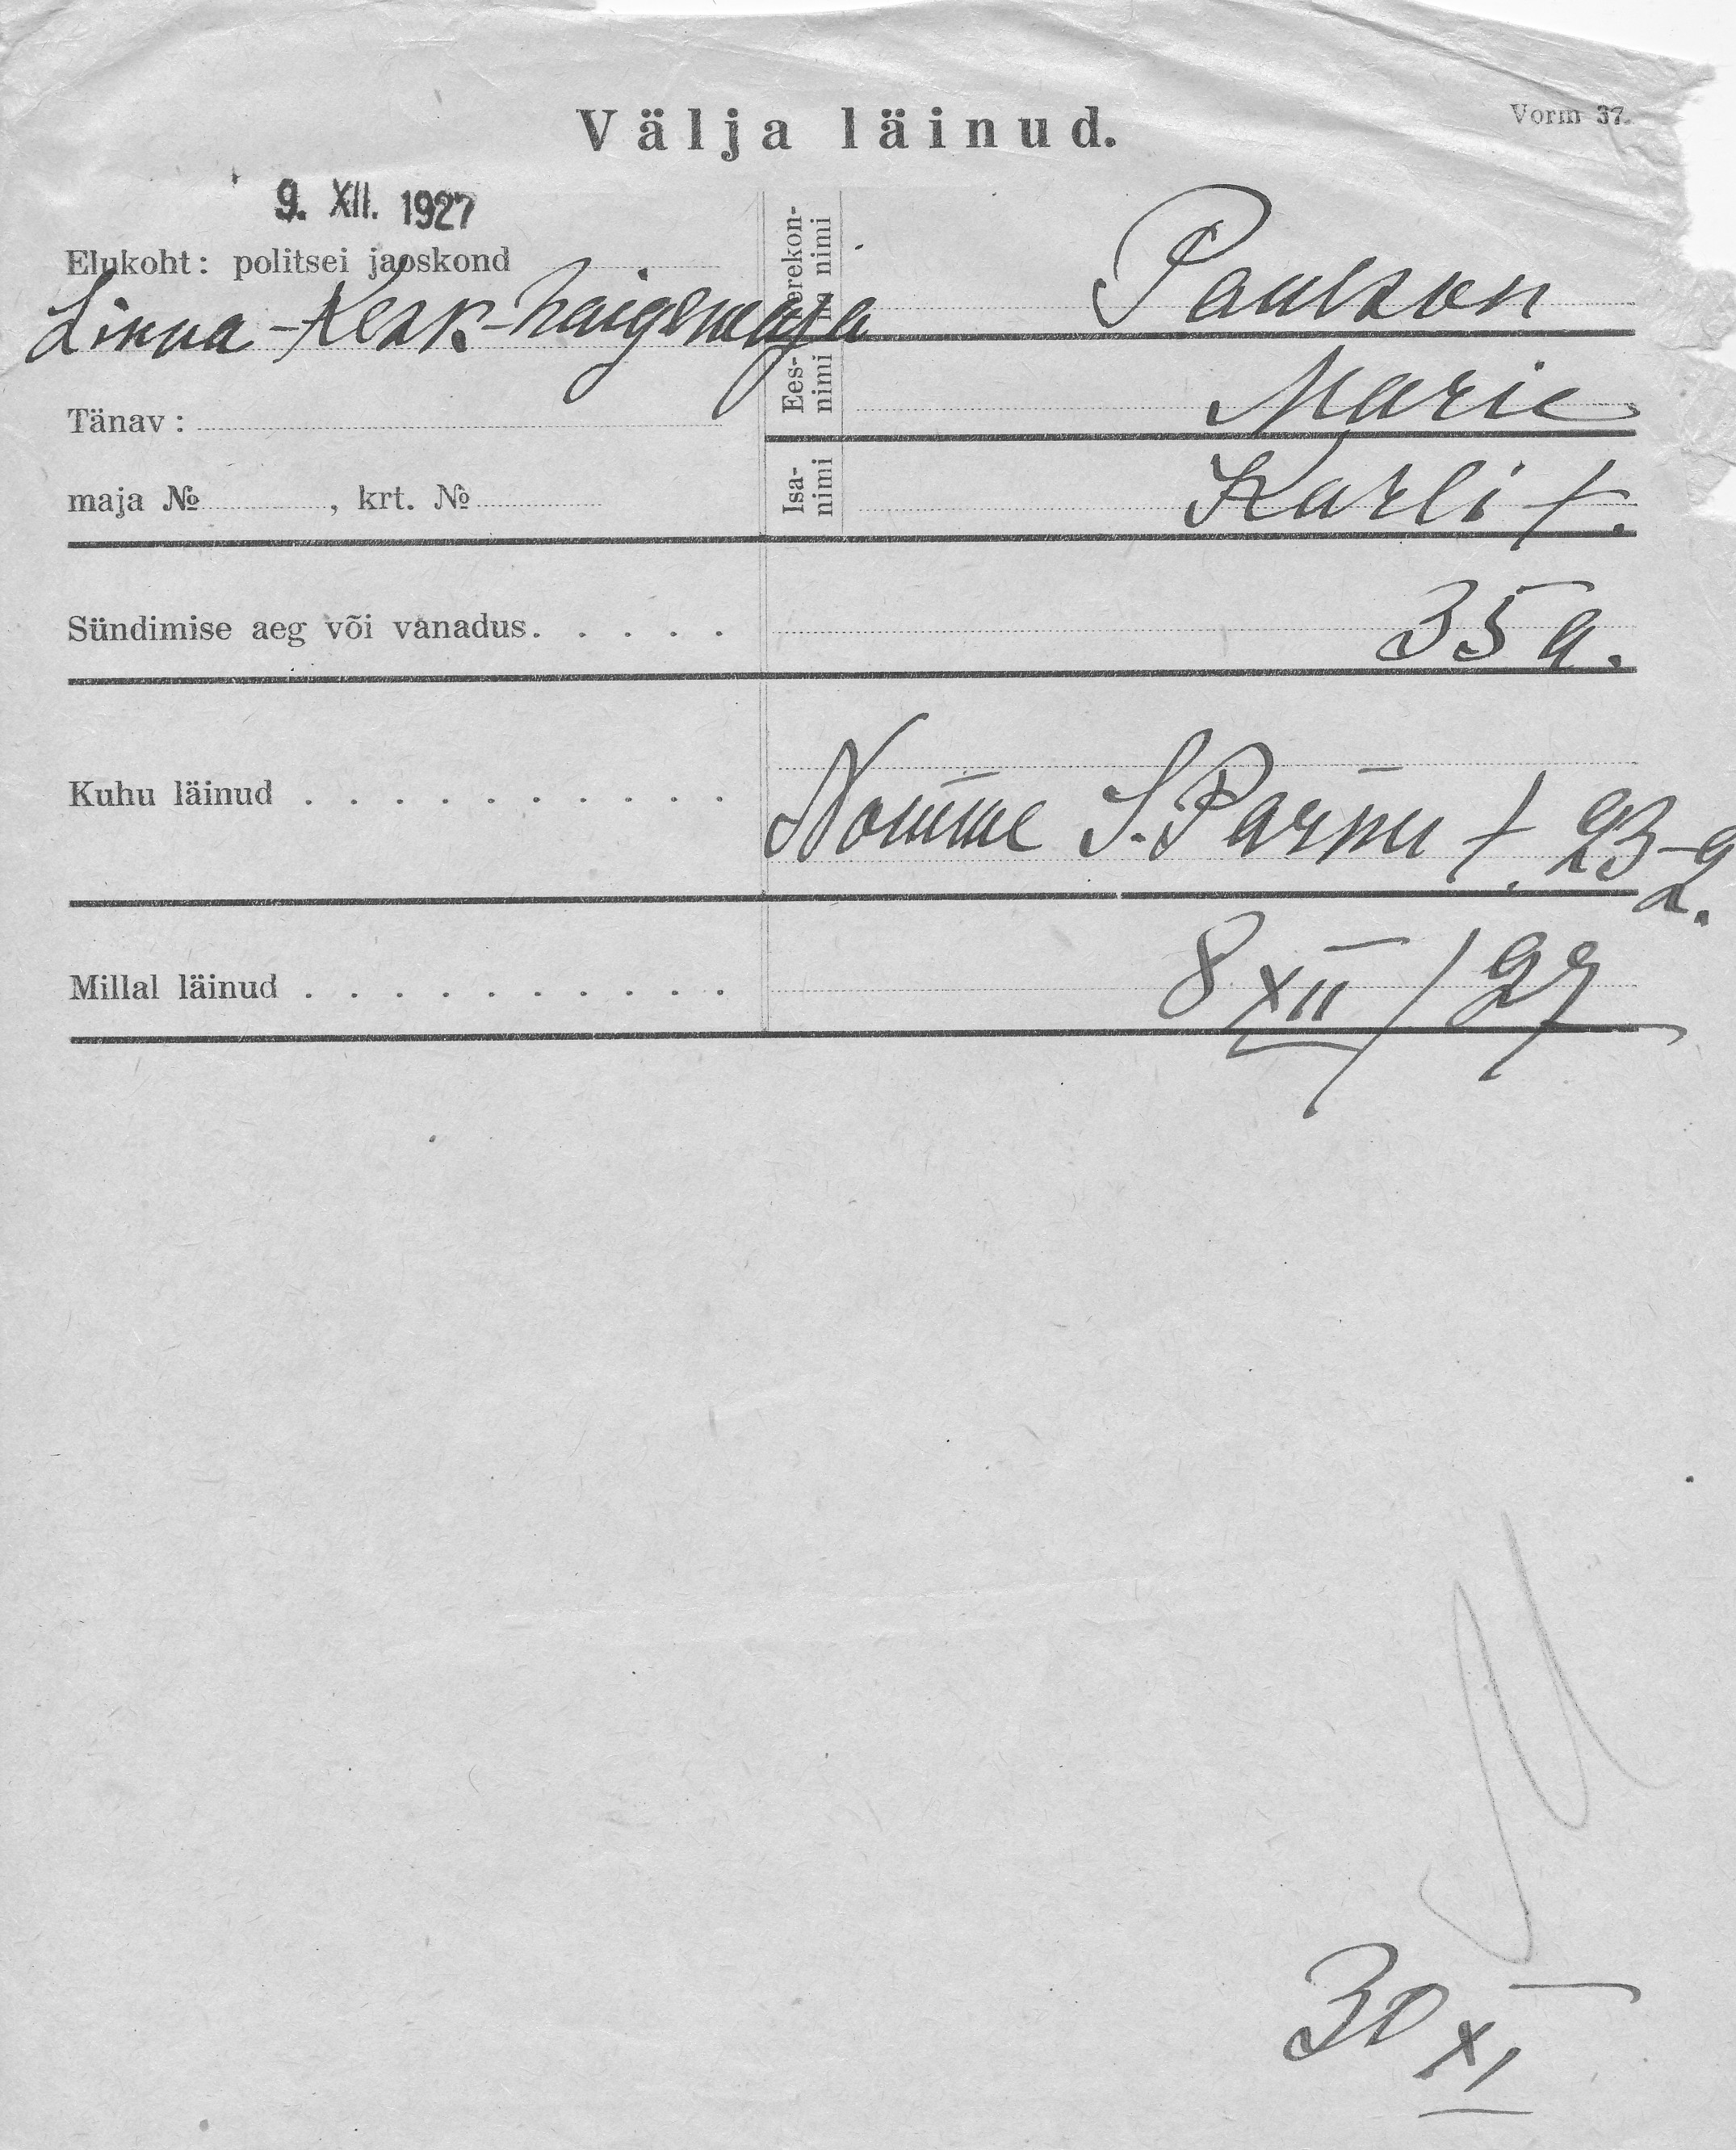 Vorm 37.
Välja läinud.
9. XII. 1927
Elukoht: politsei jaoskond
Linna-Kesk-haigemaja
Tänav:
maja № , krt. №
Perekonna nimi Paulson
Ees-nimi Marie
Isa-nimi Karli t.
Sündimise aeg või vanadus. 35 a.
Kuhu läinud Nomme S. Parnu t. 23-2.
Millal läinud 8 XII / 27
30 XI